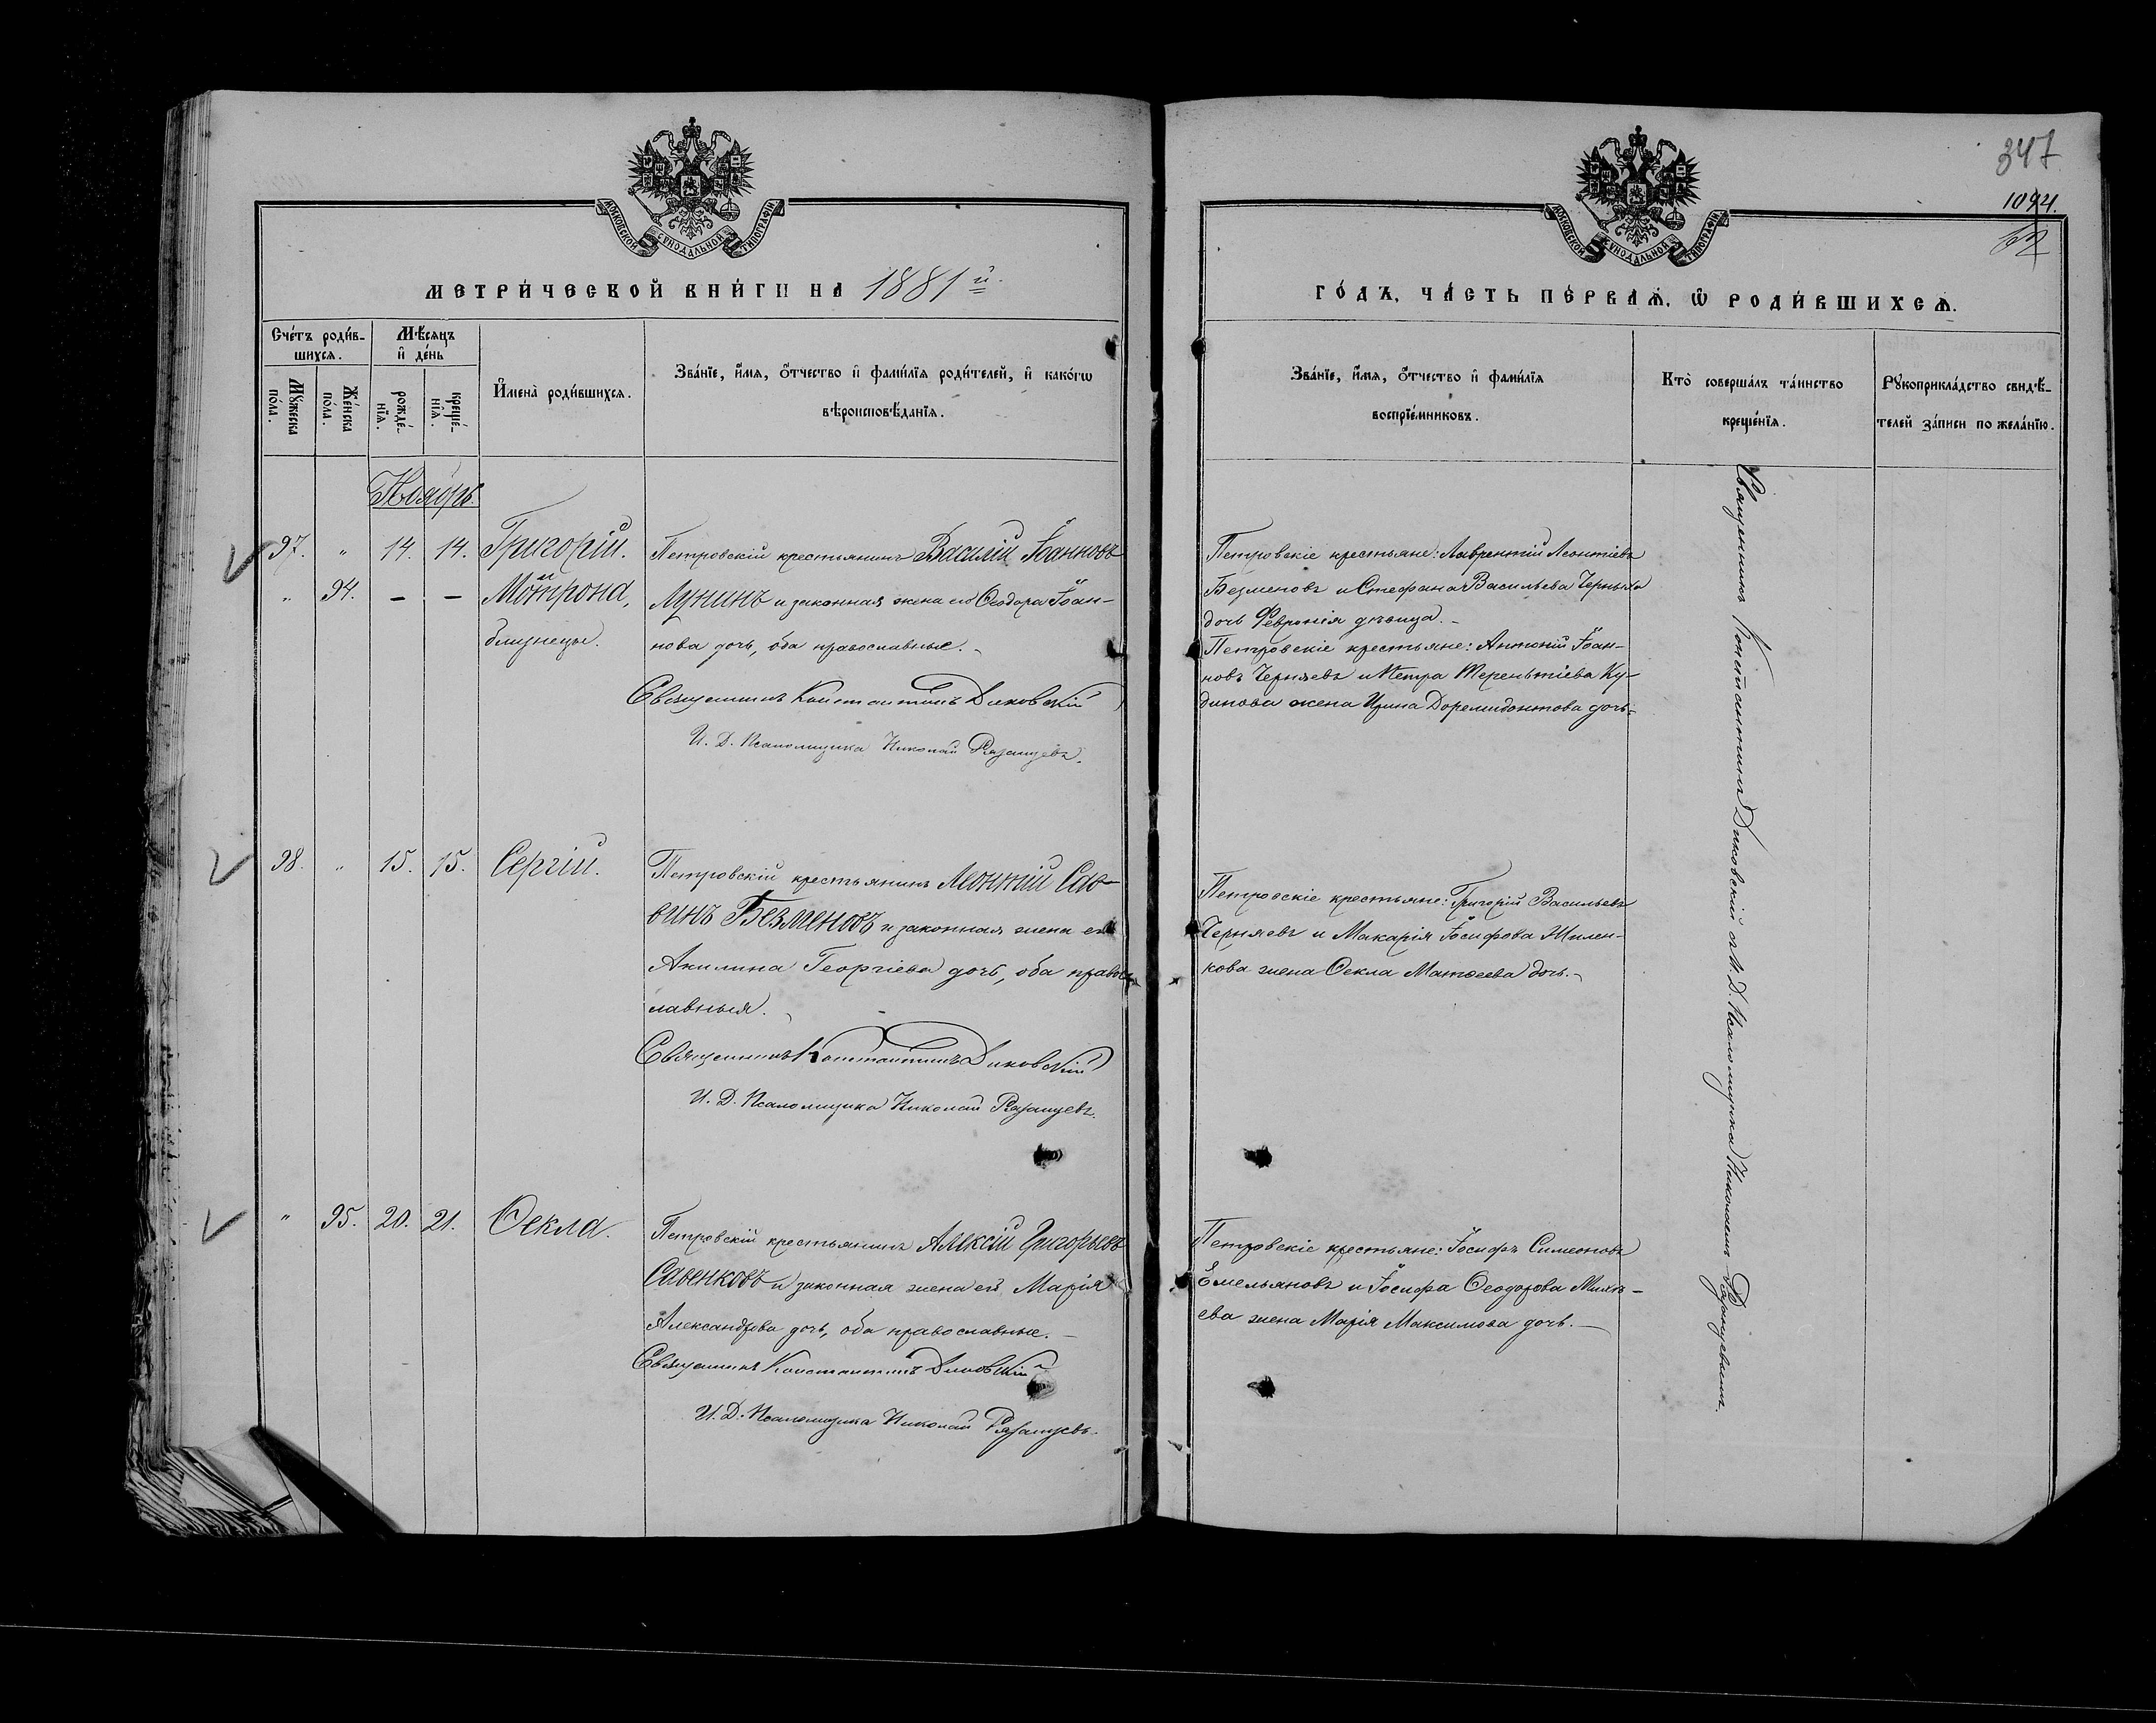 МОСКОВСКОЙ СѴНОДАЛЬНОЙ ТИПОГРАФІИ
МЕТРИ́ЧЕСКОЙ КНИ́ГИ НА 1881й.
Сче́тъ роди́в-
шихся.
Мѣ́сяцъ
и҆ де́нь
Мꙋ́жеска
по́ла.
Же́нска
по́ла.
рожде́-
нїѧ.
креще́-
нїѧ.
И҆мена̀ роди́вшихсѧ.
Зва́нїе, и҆́мѧ, ѻ҆́тчество и҆ фами́лїѧ роди́телей, и҆ како́гѡ
вѣроисповѣ́данїѧ.
Ноябрь.
97. " 14. 14. Григорій. Петровскій крестьянинъ Василій Іоанновъ
" 94. – – Мотрона, Мунинъ и законная жена его Ѳеодора Іоан-
близнецы. нова дочь, оба православные.
Священникъ Константинъ Диковскій
И. Д. Псаломщика Николай Рязанцевъ.
98. " 15. 15. Сергій. Петровскій крестьянинъ Леонтій Сав-
винъ Безменовъ и законная жена его
Акилина Георгіева дочь, оба правос-
лавныя.
Священникъ Константинъ Диковскій
И. Д. Псаломщика Николай Рязанцевъ.
" 95. 20. 21. Ѳекла. Петровскій крестьянинъ Алексій Григорьевъ
Савенковъ и законная жена его Марія
Александрова дочь, оба православные.
Священникъ Константинъ Диковскій
И. Д. Псаломщика Николай Рязанцевъ.
347
1094.
МОСКОВСКОЙ СѴНОДАЛЬНОЙ ТИПОГРАФІИ
ГО́ДЪ, ЧА́СТЬ ПЕ́РВАѦ, Ѡ҆ РОДИ́ВШИХСѦ.
Зва́нїе, и҆́мѧ, ѻ҆́тчество и҆ фами́лїѧ
воспрїе́мниковъ.
Кто̀ соверша́лъ та́инство
креще́нїѧ.
Рꙋкоприкла́дство свидѣ́-
телей за́писи по жела́нїю.
Петровскіе крестьяне: Лаврентій Леонтіевъ
Безменовъ и Стефана Васильева Черныха
дочь Февронія дѣвица.
Петровскіе крестьяне: Антоній Іоан-
новъ Черняевъ и Петра Терентіева Ку-
динова жена Ирина Доремидонтова дочь.
Петровскіе крестьяне: Григорій Васильевъ
Черняевъ и Макарія Іосифова Жилен-
кова жена Ѳекла Матѳеева дочь.
Петровскіе крестьяне: Іосифъ Симеоновъ
Емельяновъ и Іосифа Ѳеодорова Михѣ-
ева жена Марія Максимова дочь.
Священникъ Константинъ Диковскій съ И. Д. Псаломщика Николаемъ Рязанцевымъ.